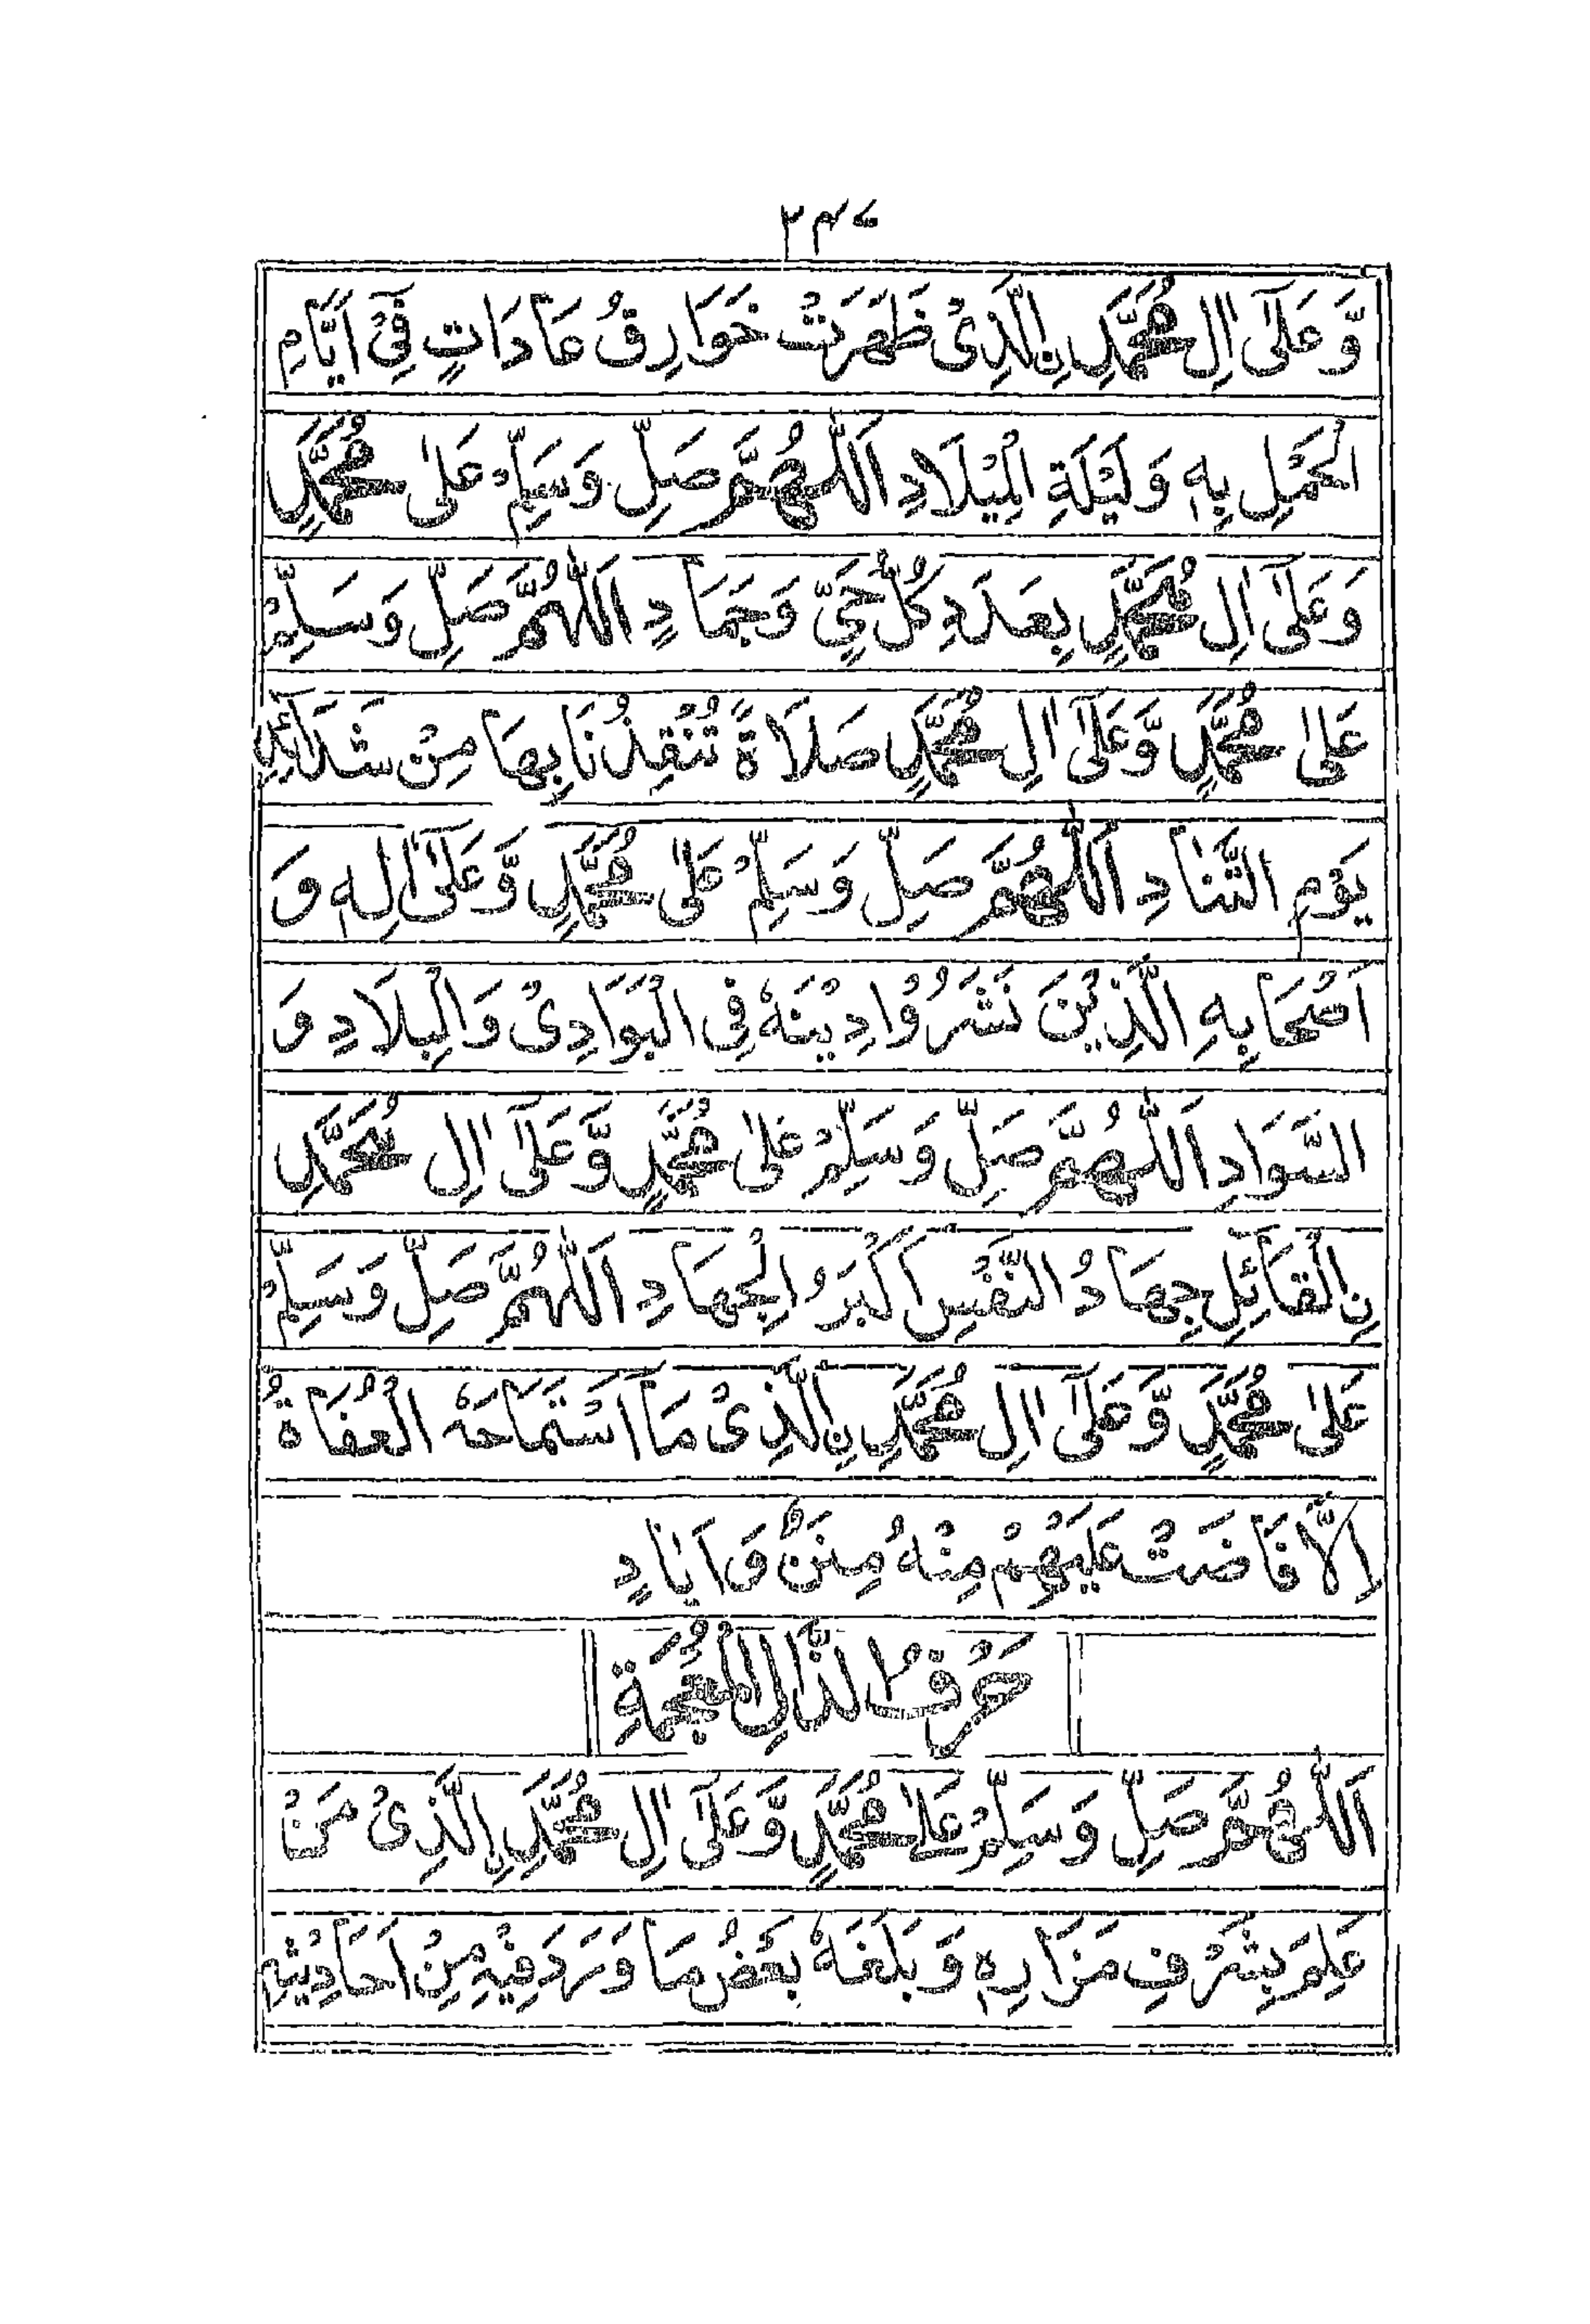 ۲۴۷
وَّعَلٰٓى اٰلِ مُحَمَّدِ نِ الَّذِىْ ظَهَرَتْ خَوَارِقُ عَادَاتٍ فِىْٓ اَيَّامِ
الْحَمْلِ بِهٖ وَلَيْلَةِ الْمِيْلَادِ اَللّٰهُمَّ صَلِّ وَسَلِّمْ عَلٰى مُحَمَّدٍ
وَعَلٰٓى اٰلِ مُحَمَّدٍ بِعَدَدِ كُلِّ حَيٍّ وَجَمَادٍ اَللّٰهُمَّ صَلِّ وَسَلِّمْ
عَلٰى مُحَمَّدٍ وَّعَلٰٓى اٰلِ مُحَمَّدٍ صَلَاةً تُنْقِذُنَا بِهَا مِنْ شَدَآئِدِ
يَوْمِ التَّنَادِ اَللّٰهُمَّ صَلِّ وَسَلِّمْ عَلٰى مُحَمَّدٍ وَّعَلٰٓى اٰلِهٖ وَ
اَصْحَابِهِ الَّذِيْنَ نَشَرُوْا دِيْنَهٗ فِى الْبَوَادِىْ وَالْبِلَادِ وَ
السَّوَادِ اَللّٰهُمَّ صَلِّ وَسَلِّمْ عَلٰى مُحَمَّدٍ وَّعَلٰٓى اٰلِ مُحَمَّدِ
نِ الْقَآئِلِ جِهَادُ النَّفْسِ اَكْبَرُ الْجِهَادِ اَللّٰهُمَّ صَلِّ وَسَلِّمْ
عَلٰى مُحَمَّدٍ وَّعَلٰٓى اٰلِ مُحَمَّدِ نِ الَّذِىْ مَا اسْتَمَاحَهُ الْعُفَاةُ
اِلَّا فَاضَتْ عَلَيْهِمْ مِنْهُ مِنَنٌ وَاَيَادٍ
حَرْفُ الذَّالِ الْمُعْجَمَةِ
اَللّٰهُمَّ صَلِّ وَسَلِّمْ عَلٰى مُحَمَّدٍ وَّعَلٰٓى اٰلِ مُحَمَّدِ نِ الَّذِىْ مَنْ
عَلِمَ بِشَرَفِ مَزَارِهٖ وَبَلَغَهٗ بَعْضُ مَا وَرَدَ فِيْهِ مِنْ اَحَادِيْثِهٖ